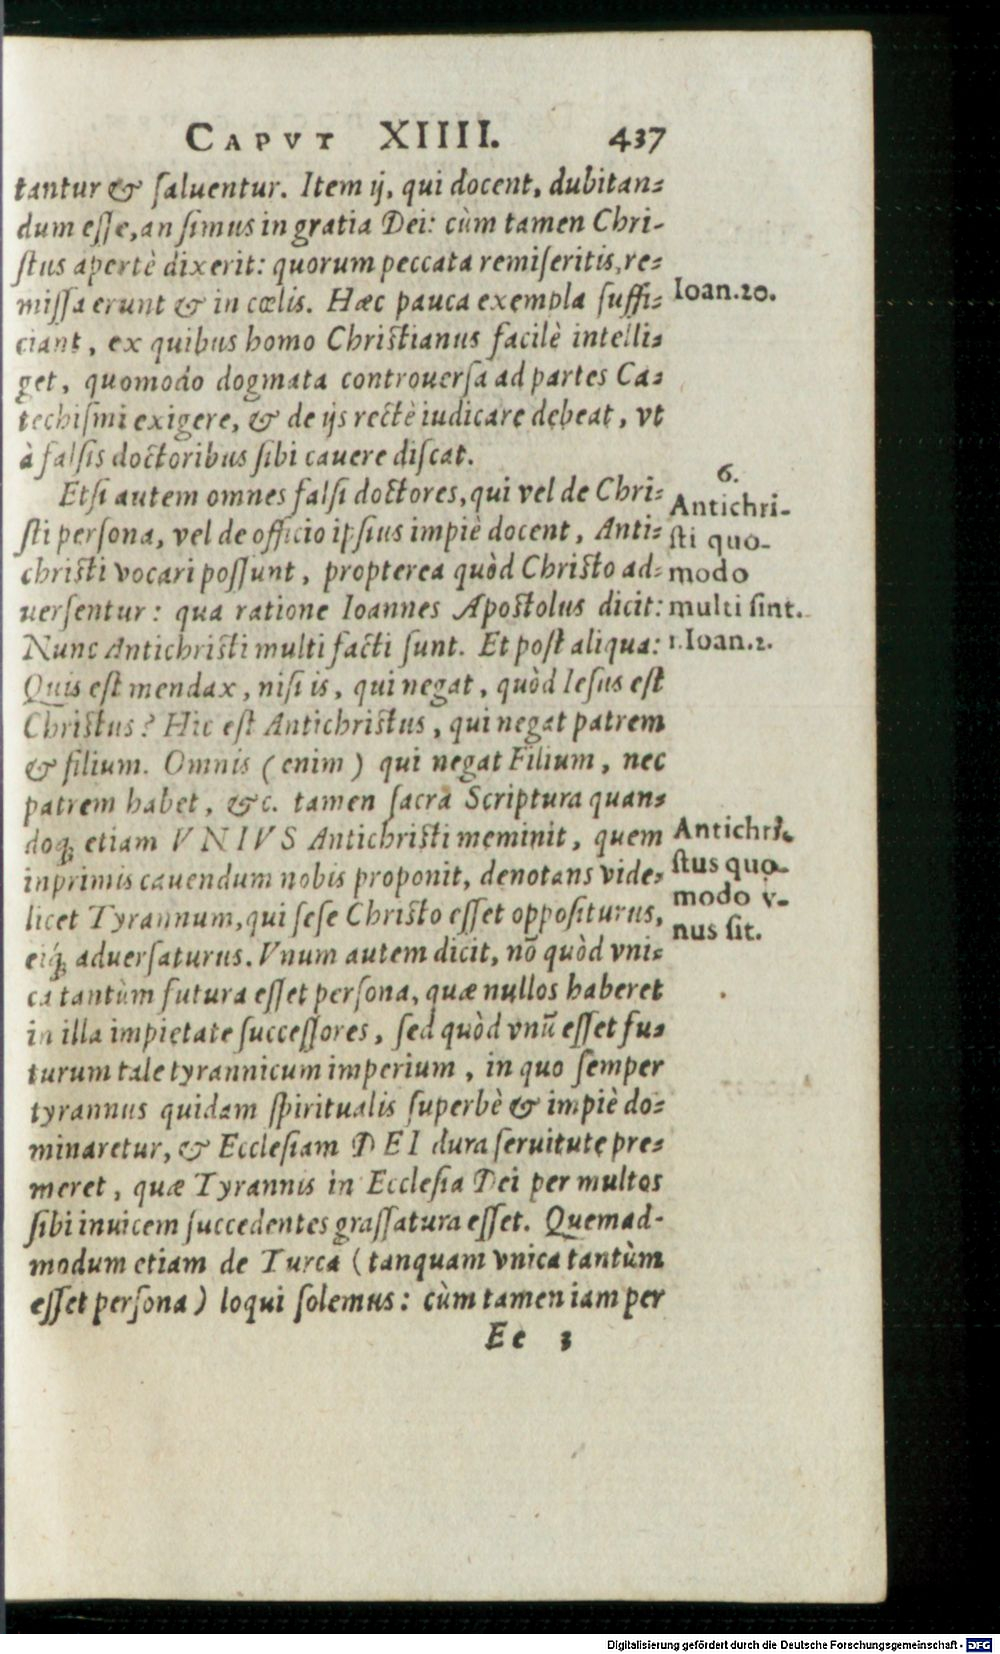 CAPVT XIIII. 437
tantur & ſaluentur. Item ij, qui docent, dubitan-
dum eſſe, an ſimus in gratia Dei: cùm tamen Chri-
ſtus apertè dixerit: quorum peccata remiſeritis, re-
miſſa erunt & in cœlis. Hæc pauca exempla ſuffi-
Ioan.20.
ciant, ex quibus homo Chriſtianus facilè intelli-
get, quomodo dogmata controuerſa ad partes Ca-
techiſmi exigere, & de ijs rectè iudicare debeat, vt
à falſis doctoribus ſibi cauere diſcat.
Etſi autem omnes falſi doctores, qui vel de Chri-
ſti perſona, vel de officio ipſius impiè docent, Anti-
chriſti vocari poſſunt, propterea quòd Chriſto ad-
uerſentur: qua ratione Ioannes Apoſtolus dicit:
Nunc Antichriſti multi facti ſunt. Et poſt aliqua:
6.
Antichri-
ſti quo-
modo
multi ſint.
1.Ioan.2.
Quis eſt mendax, niſi is, qui negat, quòd Ieſus eſt
Chriſtus? Hic eſt Antichriſtus, qui negat patrem
& filium. Omnis (enim) qui negat Filium, nec
patrem habet, &c. tamen ſacra Scriptura quan-
doq; etiam VNIVS Antichriſti meminit, quem
inprimis cauendum nobis proponit, denotans vide-
licet Tyrannum, qui ſeſe Chriſto eſſet oppoſiturus,
eiq́; aduerſaturus. Vnum autem dicit, nō quòd vni-
Antichri-
ſtus quo-
modo v-
nus ſit.
ca tantùm futura eſſet perſona, quæ nullos haberet
in illa impietate ſucceſſores, ſed quòd vnū eſſet fu-
turum tale tyrannicum imperium, in quo ſemper
tyrannus quidam ſpiritualis ſuperbè & impiè do-
minaretur, & Eccleſiam DEI dura ſeruitute pre-
meret, quæ Tyrannis in Eccleſia Dei per multos
ſibi inuicem ſuccedentes graſſatura eſſet. Quemad-
modum etiam de Turca (tanquam vnica tantùm
eſſet perſona) loqui ſolemus: cùm tamen iam per
Ee 3
Digitalisierung gefördert durch die Deutsche Forschungsgemeinschaft - DFG